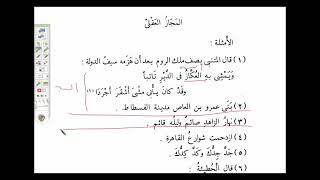 المَجَازُ العَقْلِيُّ
الأمثلة :
(١) قال المتنبى يصف ملك الروم بعد أن هَزَمه سيفُ الدولة :
وَيَمْشِى بِهِ العُكَّازُ فى الدَّيْرِ تَائِباً
وَقَدْ كانَ يَأْبَى مَشْىَ أَشْقَرَ أَجْرَدَا (١)
(٢) بَنَى عمرو بن العاص مدينة الفسطاط .
(٣) نهارُ الزاهدِ صائمٌ وليلُه قائمٌ .
(٤) ازدحمت شوارعُ القاهرة .
(٥) جَدَّ جِدُّكَ وكَدَّ كَدُّكَ .
(٦) قال الحُطَيْئَةُ :